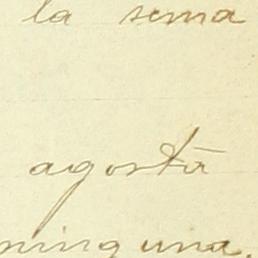 la sema
agosta
ninguna.